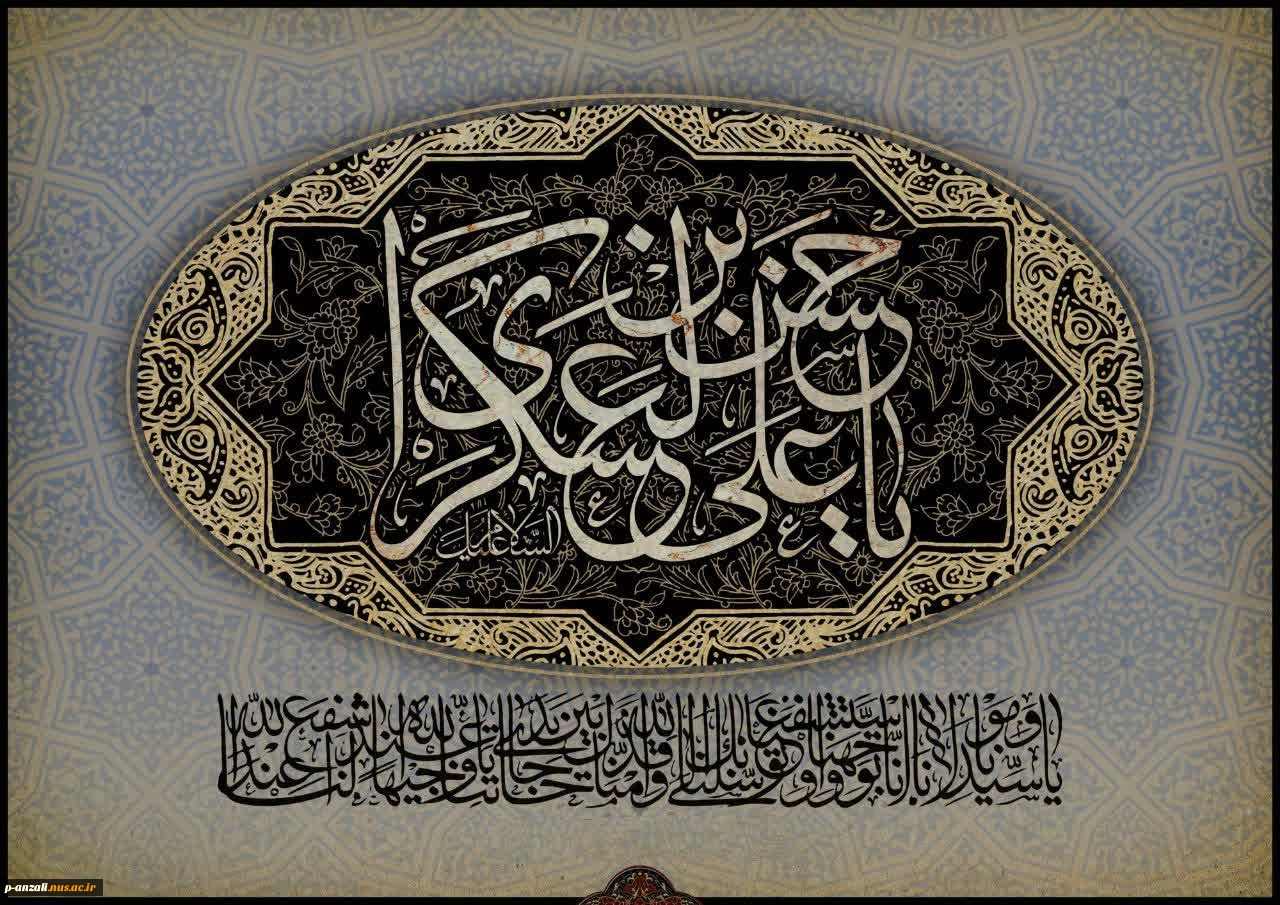 یا حسن بن علی العسکری
السلام علیک
یا سیدنا و مولانا انا توجهنا و استشفعنا و توسلنا بک الی الله و قدمناک بین یدی حاجاتنا یا وجیها عند الله اشفع لنا عند الله
p-anzali.nus.ac.ir